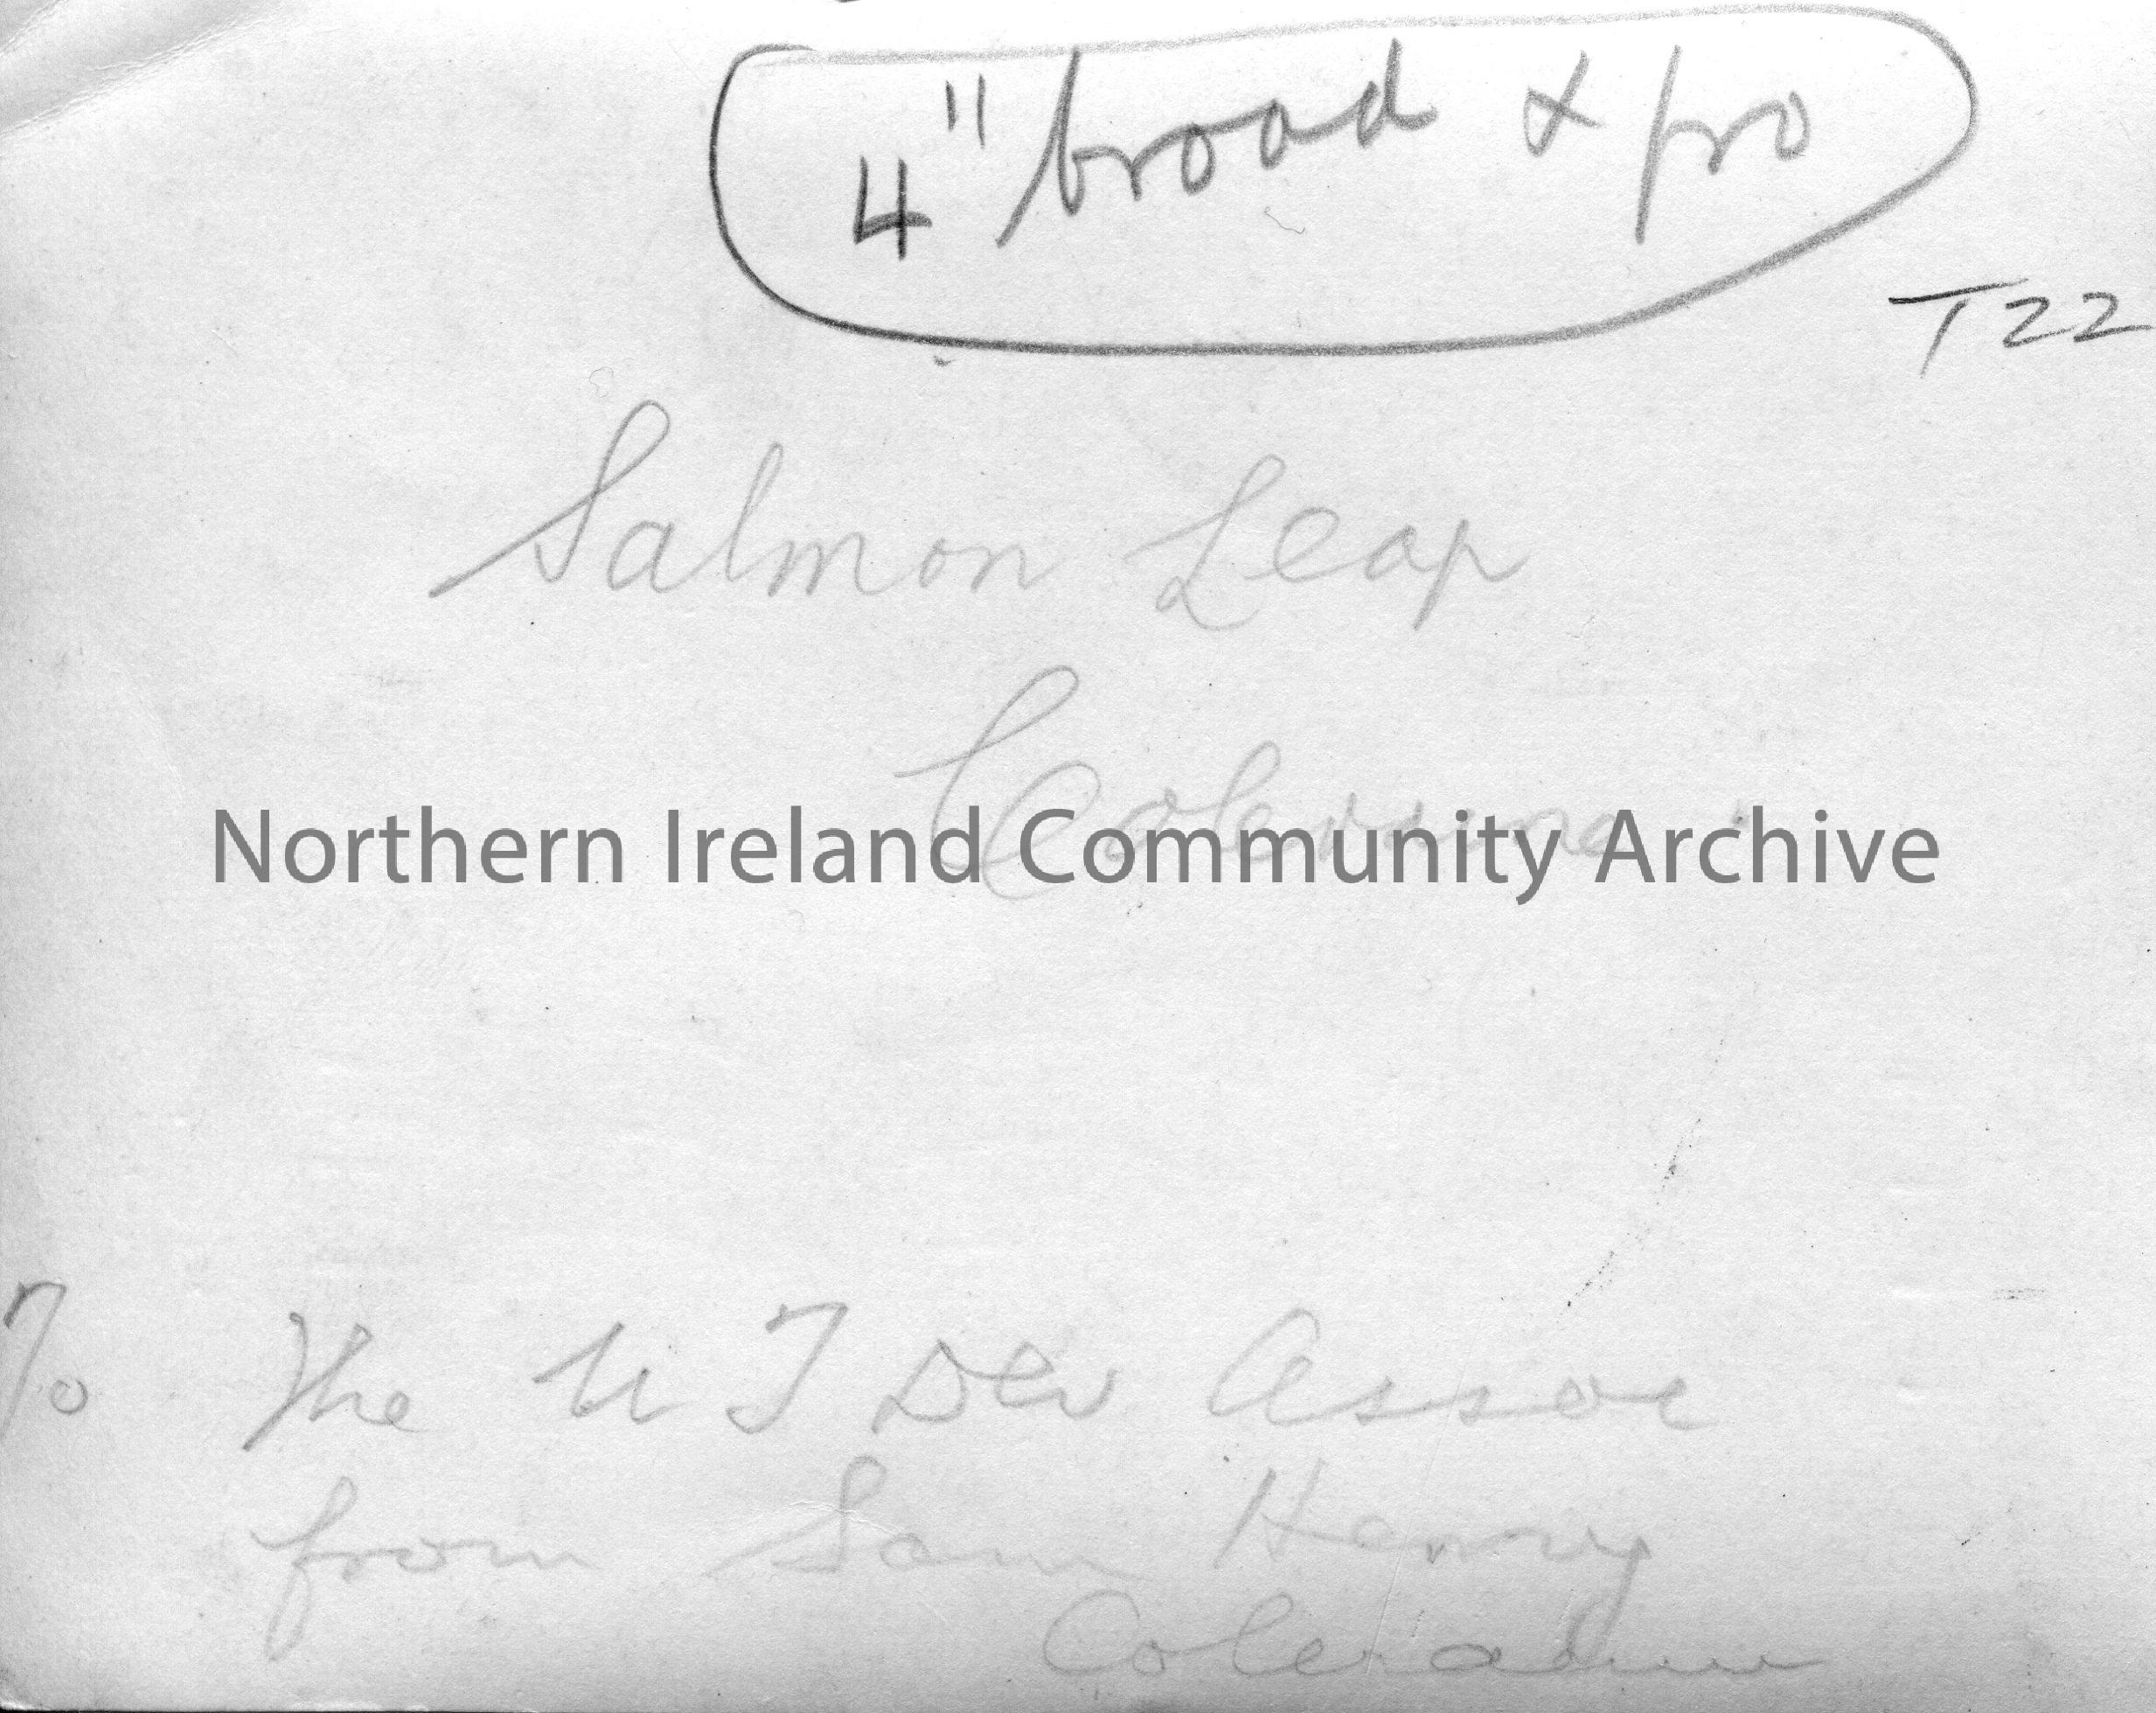 4" broad & pro
T22
Salmon Leap
Coleraine
Northern Ireland Community Archive
To The U T Dev Assoc
from Sam Henry
Coleraine